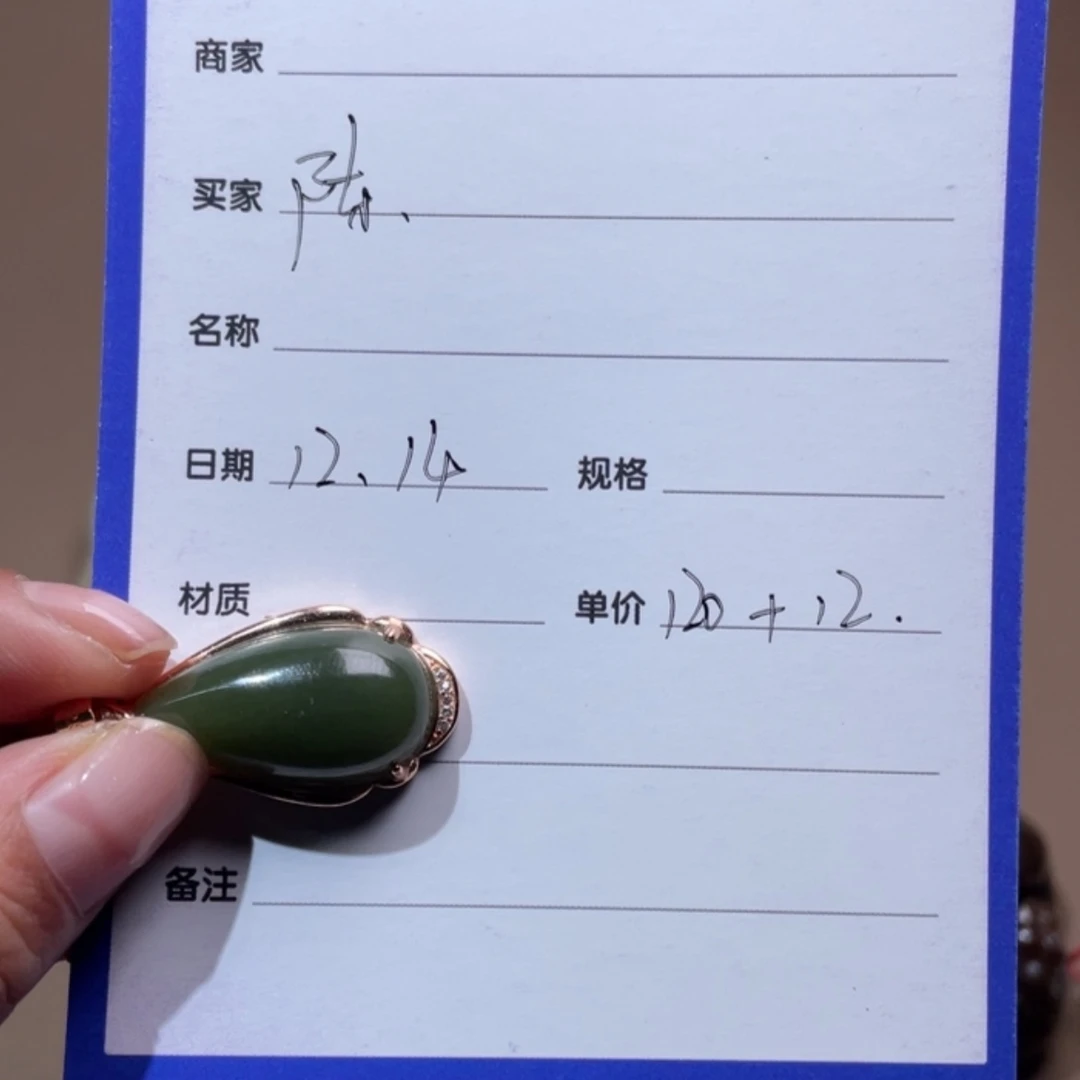 商家
买家 陈.
名称
日期 12、14 规格
材质 单价 120+12.
备注